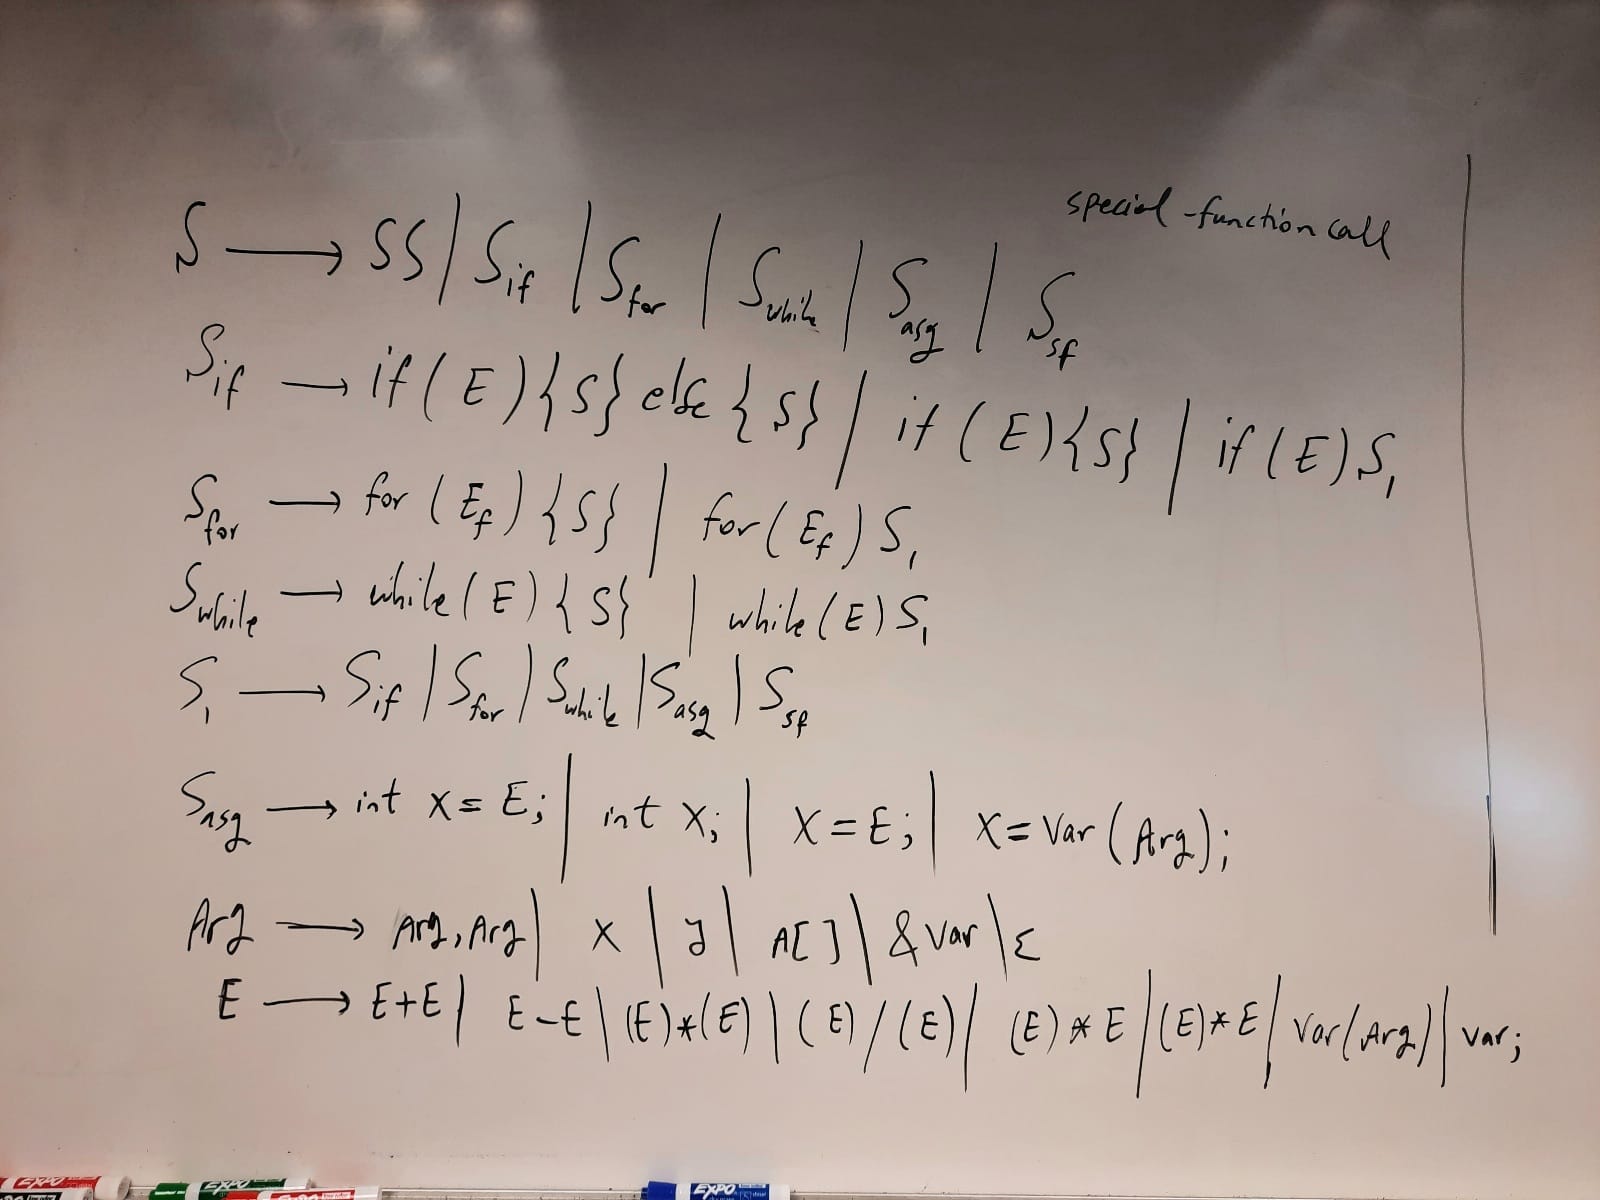 special-function call
S → SS | S_if | S_for | S_while | S_asg | S_sf
S_if → if(E){S} else {S} | if(E){S} | if(E)S_1
S_for → for(E_f){S} | for(E_f)S_1
S_while → while(E){S} | while(E)S_1
S_1 → S_if | S_for | S_while | S_asg | S_sf
S_asg → int x = E; | int x; | x = E; | x = Var(Arg);
Arg → Arg, Arg | x | y | A[ ] | &var | ε
E → E+E | E-E | (E)*(E) | (E)/(E) | (E)*E | (E)*E | Var(Arg) | var;
EXPO
EXPO
EXPO
EXPO
EXPO